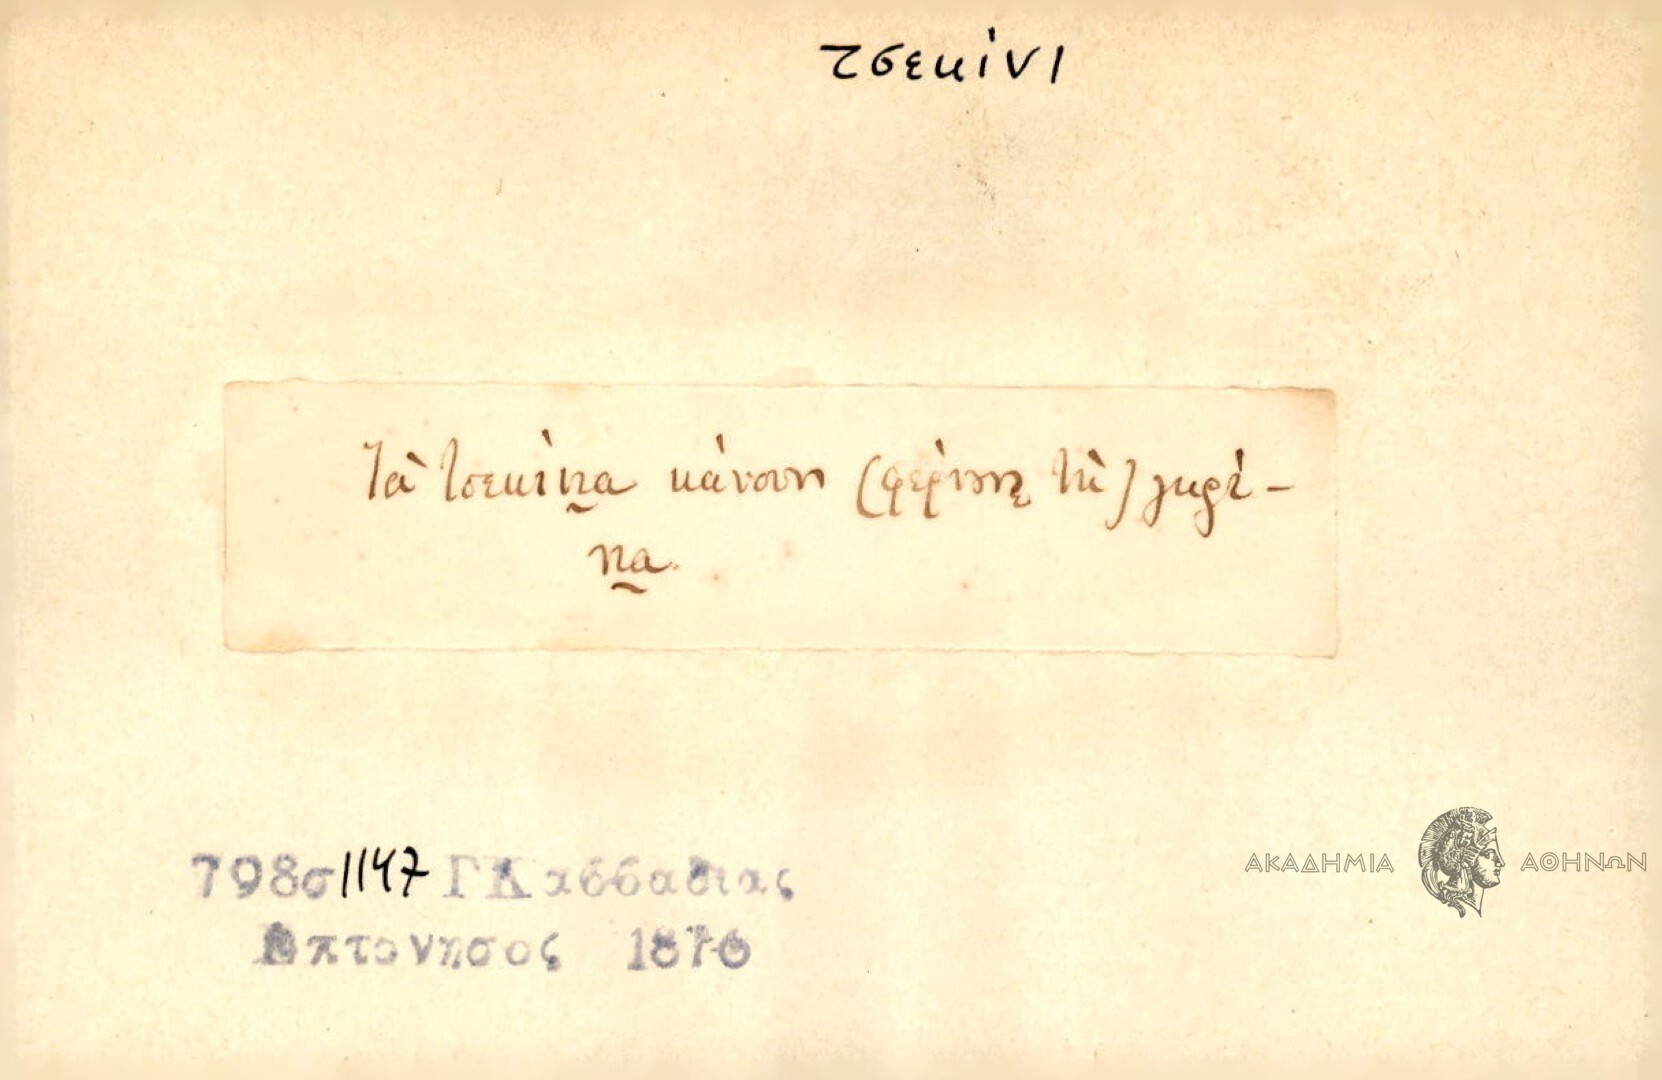 τσεκίνι
Τὰ τσεκίνια κάνουν (φέρνουν τὰ) γκρί-
νια.
798σ 1147 Γ Κασσαδιας
Επτανησος 1876
ΑΚΑΔΗΜΙΑ ΑΘΗΝΩΝ